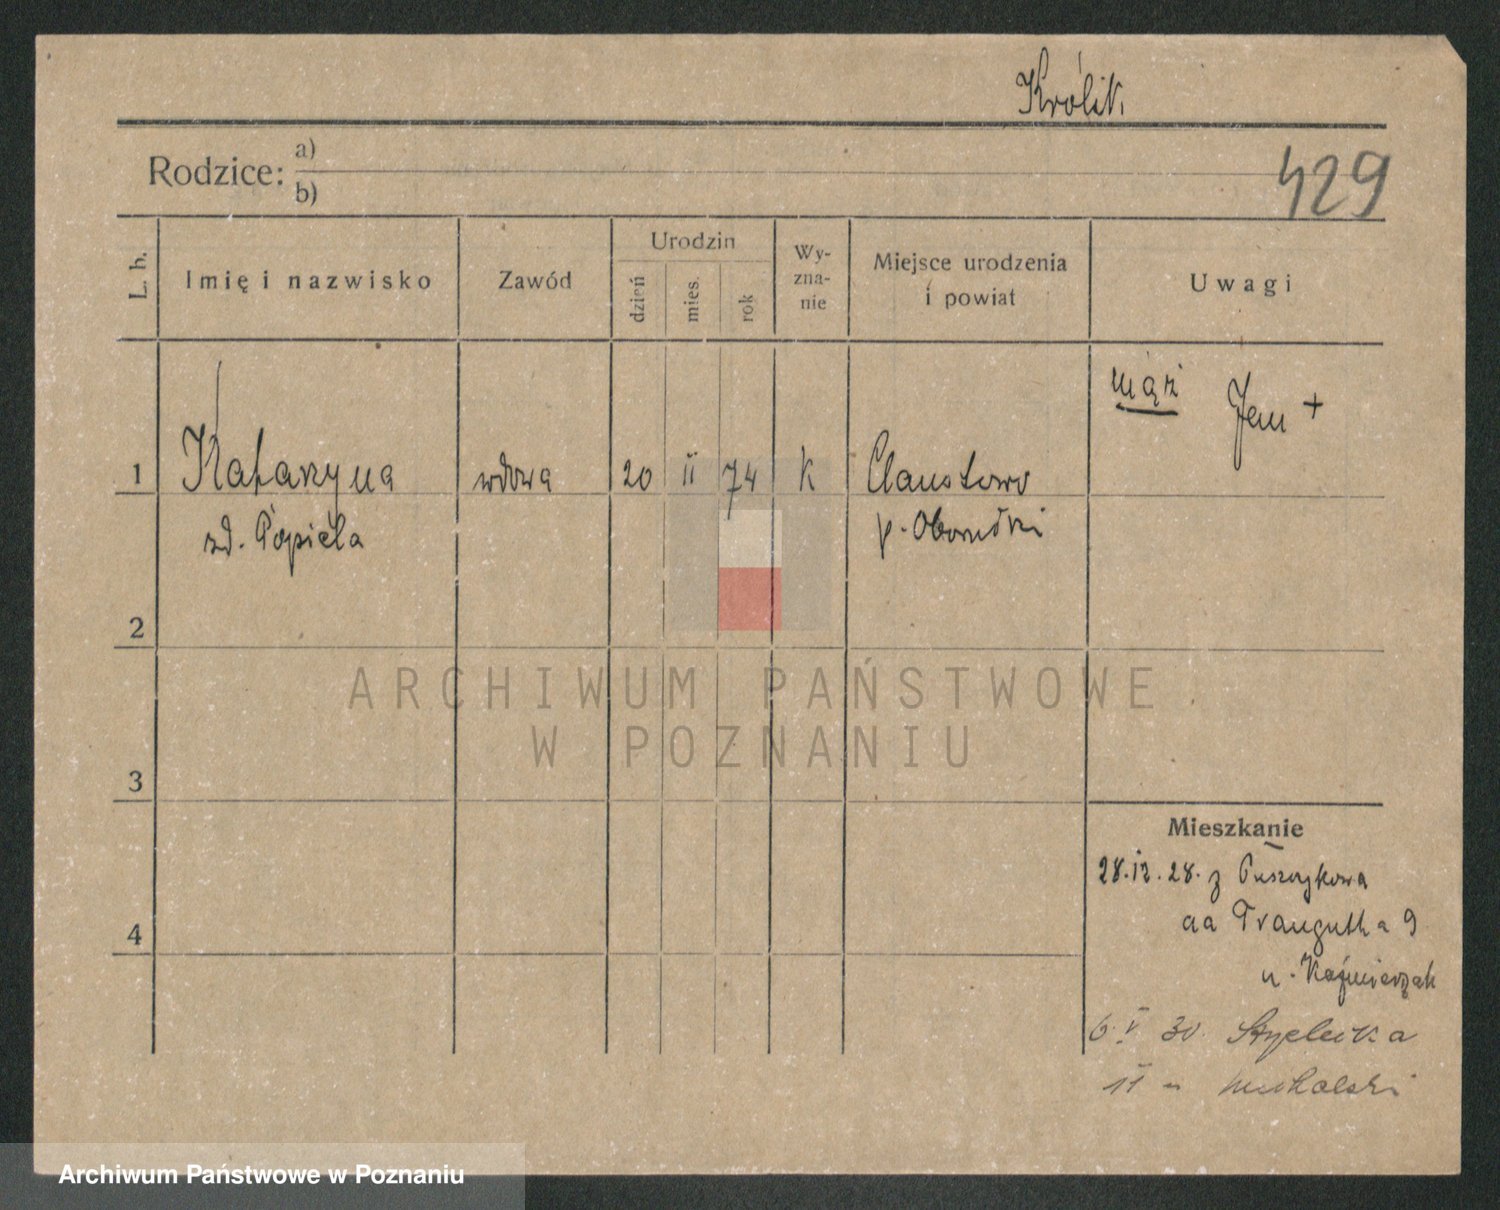 Królik.
Rodzice: a)
b)
429
L. b.
Imię i nazwisko
Zawód
Urodzin
dzień
mies.
rok
Wy-
zna-
nie
Miejsce urodzenia
i powiat
Uwagi
mąż Jan +
1 Katarzyna wdowa 20 II 74 K
zd. Popiela p. Obornicki
2
3
4
Mieszkanie
28.12.28. z Puszczykowa
na Traugutta 9
u. Kaźmierczak
6 V 30. Strzelecka
11 u
ARCHIWUM PAŃSTWOWE
W POZNANIU
Archiwum Państwowe w Poznaniu